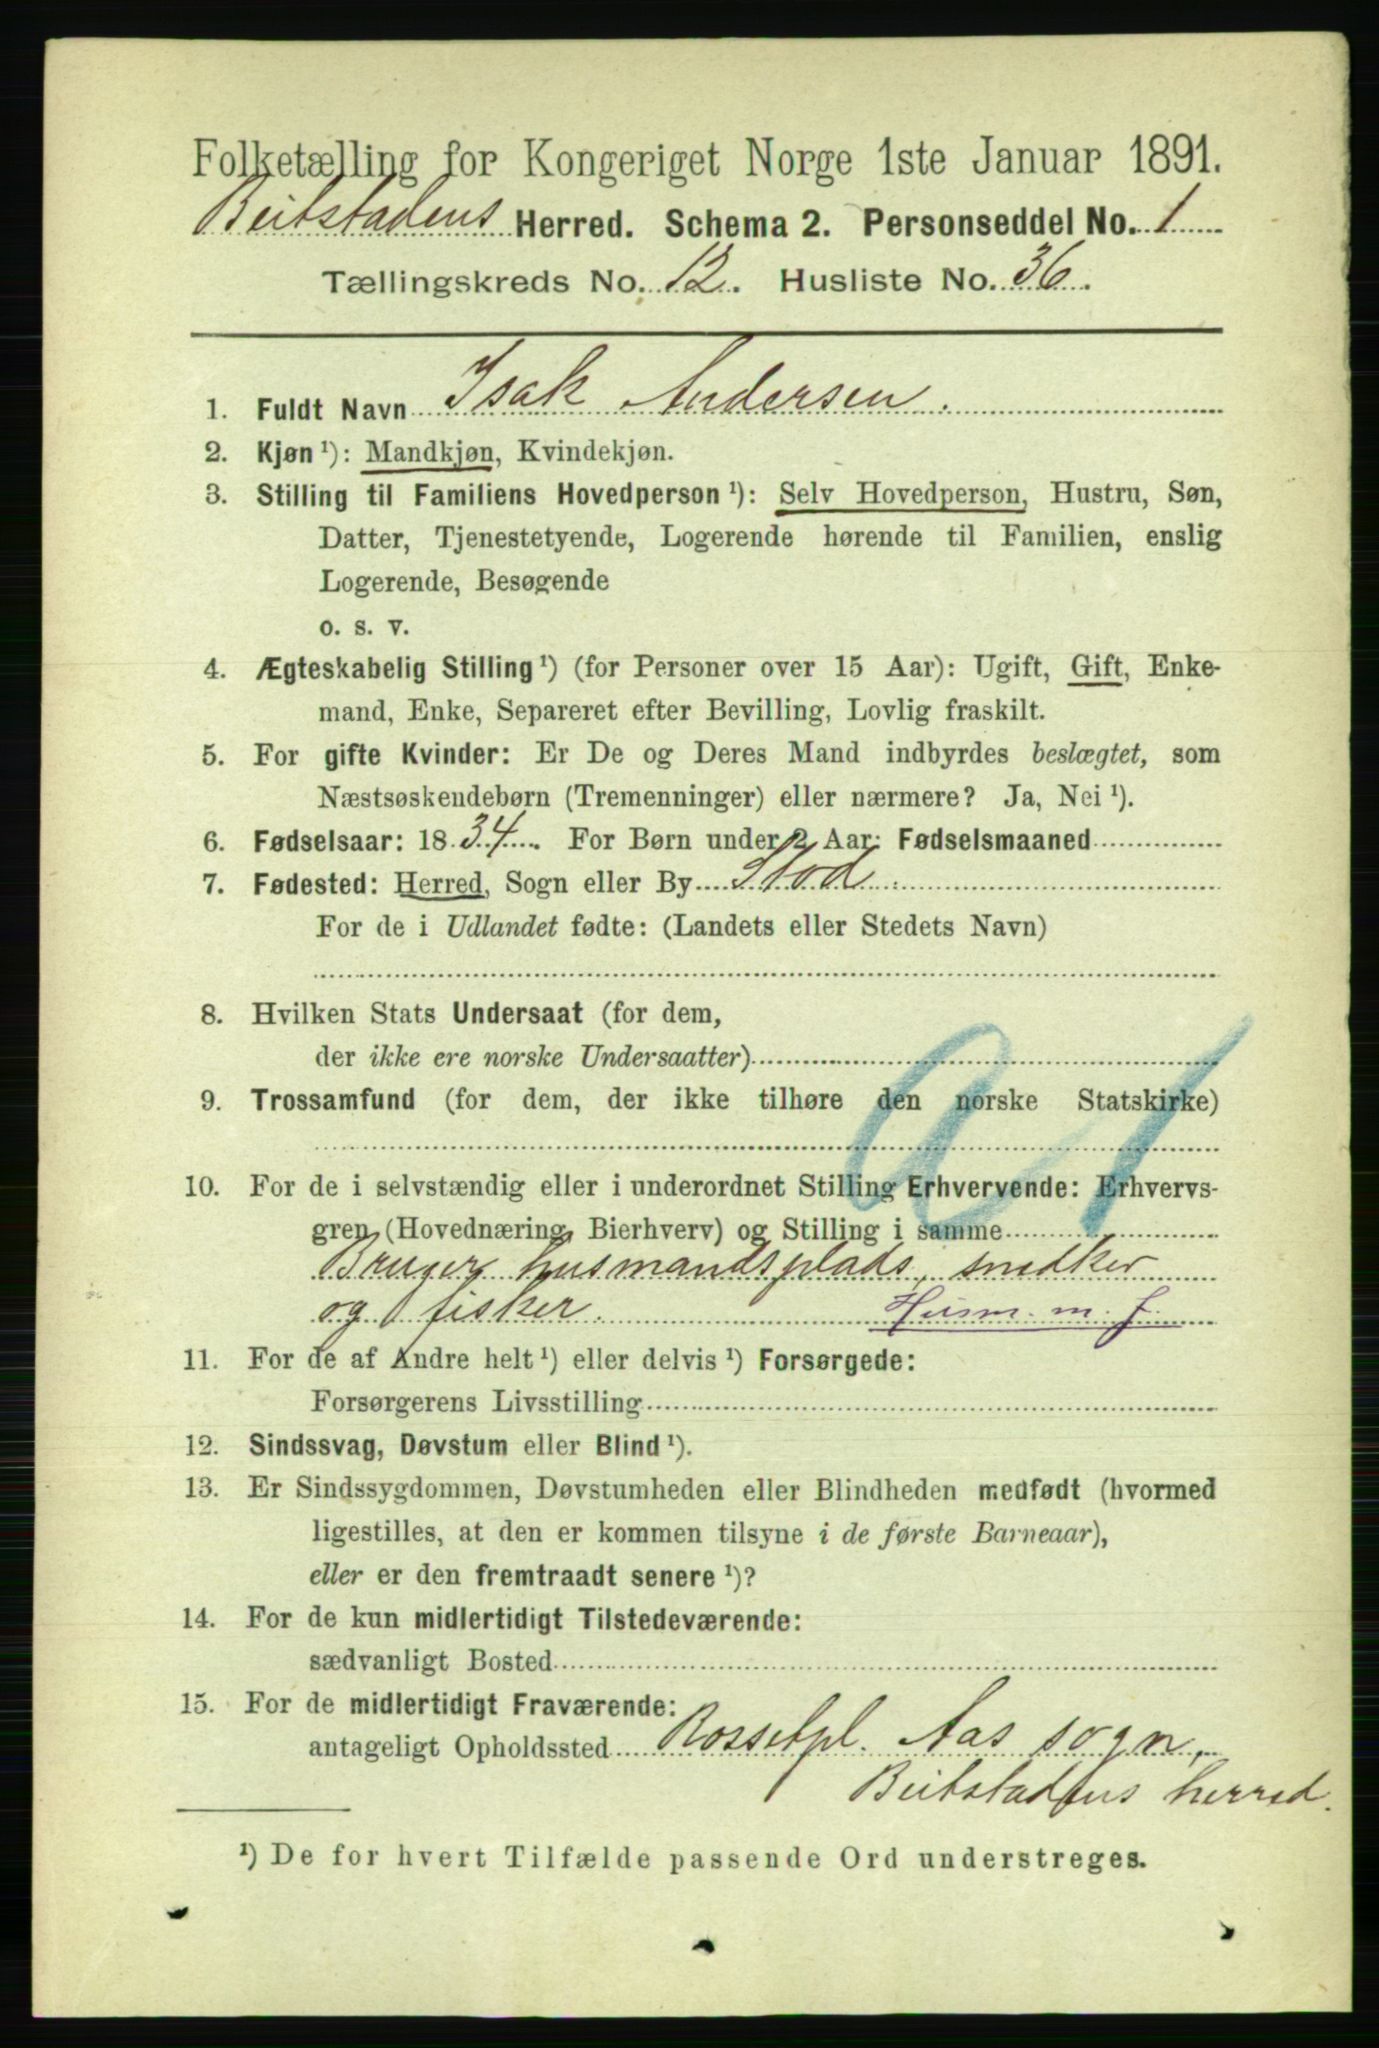 Folketælling for Kongeriget Norge 1ste Januar 1891.
Beitstadens Herred. Schema 2. Personseddel No. 1
Tællingskreds No. 12. Husliste No. 36.
1. Fuldt Navn Isak Andersen.
2. Kjøn ¹): Mandkjøn, Kvindekjøn.
3. Stilling til Familiens Hovedperson ¹): Selv Hovedperson, Hustru, Søn,
Datter, Tjenestetyende, Logerende hørende til Familien, enslig
Logerende, Besøgende
o. s. v.
4. Ægteskabelig Stilling ¹) (for Personer over 15 Aar): Ugift, Gift, Enke-
mand, Enke, Separeret efter Bevilling, Lovlig fraskilt.
5. For gifte Kvinder: Er De og Deres Mand indbyrdes beslægtet, som
Næstsøskendebørn (Tremenninger) eller nærmere? Ja, Nei ¹).
6. Fødselsaar: 1834. For Børn under 2 Aar: Fødselsmaaned
7. Fødested: Herred, Sogn eller By Stod.
For de i Udlandet fødte: (Landets eller Stedets Navn)
8. Hvilken Stats Undersaat (for dem,
der ikke ere norske Undersaatter)
9. Trossamfund (for dem, der ikke tilhøre den norske Statskirke)
10. For de i selvstændig eller i underordnet Stilling Erhvervende: Erhvervs-
gren (Hovednæring, Bierhverv) og Stilling i samme
Bruger husmandsplads, snedker
og fisker. Husm. m. J.
11. For de af Andre helt ¹) eller delvis ¹) Forsørgede:
Forsørgerens Livsstilling
12. Sindssvag, Døvstum eller Blind ¹).
13. Er Sindssygdommen, Døvstumheden eller Blindheden medfødt (hvormed
ligestilles, at den er kommen tilsyne i de første Barneaar),
eller er den fremtraadt senere ¹)?
14. For de kun midlertidigt Tilstedeværende:
sædvanligt Bosted
15. For de midlertidigt Fraværende:
antageligt Opholdssted Rossetpl. Aas sogn,
Beitstadens herred.
¹) De for hvert Tilfælde passende Ord understreges.